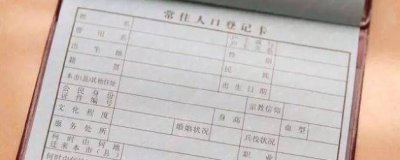 常住人口登记卡
姓名
曾用名 性别
出生地 民族
籍贯 出生日期
本市(县)其他住址 宗教信仰
公民身份证件编号 身高 血型
文化程度 婚姻状况 兵役状况
服务处所
何时由何地迁来本市(县)